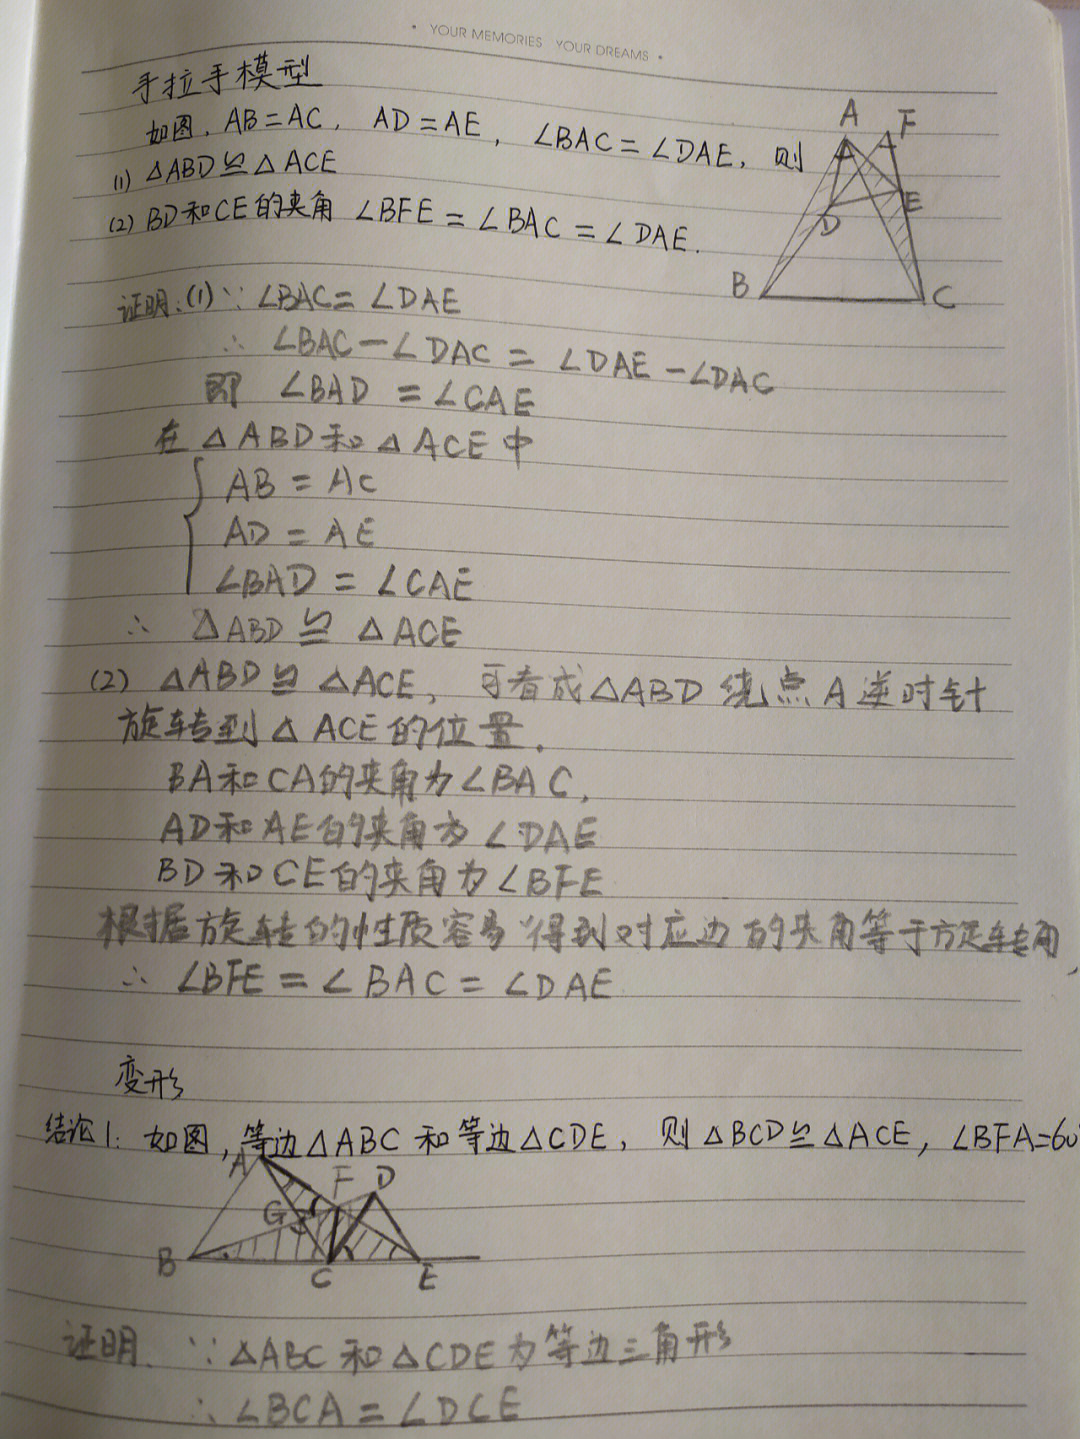 • YOUR MEMORIES YOUR DREAMS •
手拉手模型
如图, AB=AC, AD=AE, ∠BAC=∠DAE, 则
(1) △ABD≌△ACE
(2) BD和CE的夹角 ∠BFE=∠BAC=∠DAE.
A F
D E
B C
证明:(1)∵ ∠BAC=∠DAE
∴ ∠BAC-∠DAC=∠DAE-∠DAC
即 ∠BAD=∠CAE
在△ABD和△ACE中
AB=AC
AD=AE
∠BAD=∠CAE
∴ △ABD≌△ACE
(2) △ABD≌△ACE, 可看成△ABD绕点A逆时针
旋转到△ACE的位置.
BA和CA的夹角为∠BAC,
AD和AE的夹角为∠DAE
BD和CE的夹角为∠BFE
根据旋转的性质容易得到对应边的夹角等于旋转角,
∴ ∠BFE=∠BAC=∠DAE
变形
结论1: 如图,等边△ABC和等边△CDE, 则△BCD≌△ACE, ∠BFA=60°
A F D
G
B C E
证明. ∵△ABC和△CDE为等边三角形
∴ ∠BCA=∠DCE